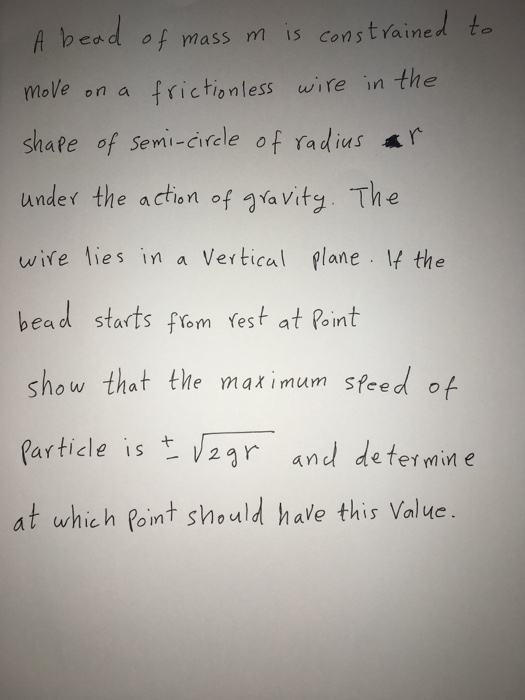 A bead of mass m is constrained to
move on a frictionless wire in the
shape of semi-circle of radius r
under the action of gravity. The
wire lies in a Vertical plane. If the
bead starts from rest at Point
show that the maximum speed of
Particle is ± √2gr and determine
at which Point should have this Value.